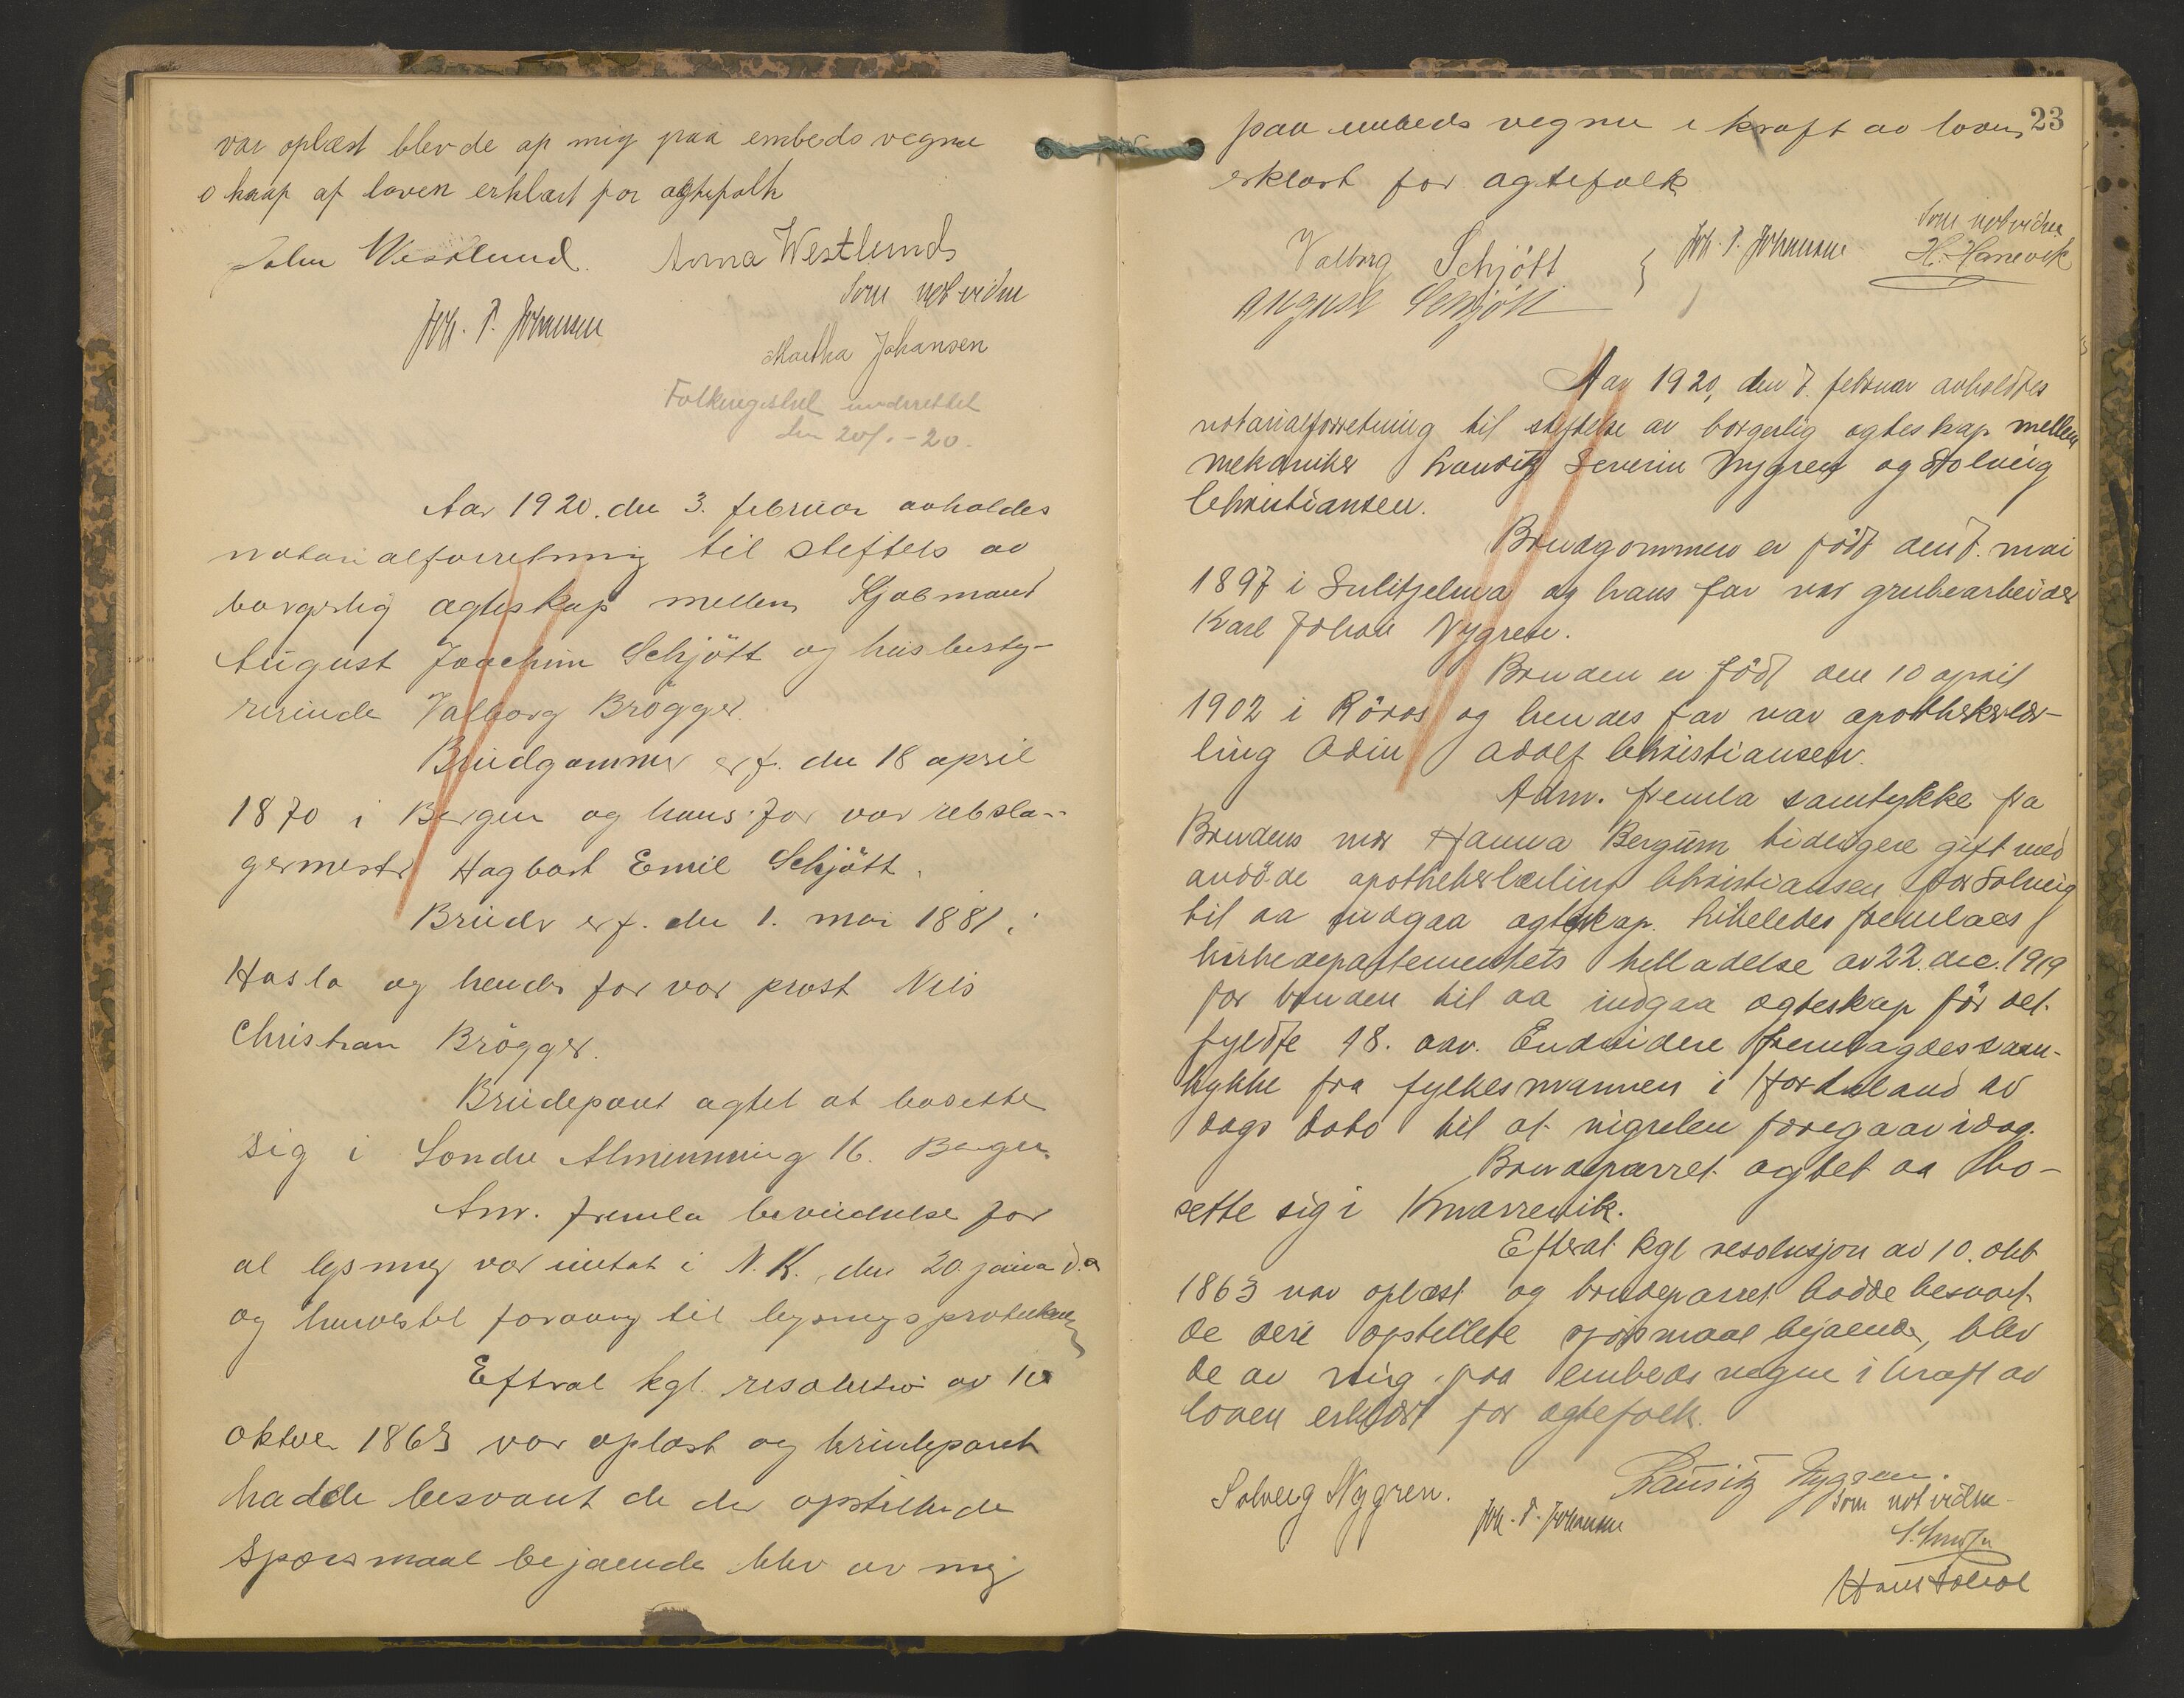 var oplæst blev de af mig paa embeds vegne
o kraf af loven erklært for ægtefolk
John Westlund. Anna Westlund
Som notvidne
Joh. P. Johansen
Martha Johansen
Folkeregistret underrettet
den 20/1.-20.
Aar 1920. den 3. februar avholdes
notarialforretning til stiftels av
borgerlig ægteskap mellem Sjømand
August Joachim Schjött og husbesty-
rerinde Valborg Brögger.
Brudgommen er f. den 18 april
1870 i Bergen og hans far var rebsla-
germestr Hagbart Emil Schjött.
Bruden er f. den 1. mai 1881 i
Haslo og hendes far var prost Nils
Christian Brögger.
Brudeparet agtet at bosette
sig i Söndre Almenning 16. Bergen.
Anv. fremla bevidnelse for
at lysning var inntat i N. K. den 20. janua d.a
og henvistet forøvrig til lysningsprotokollen
Efterat kgl. resolution av 10
oktober 1863 var oplæst og brudeparet
hadde besvaret de der opstillede
spørsmaal bejaende blev av mig
23
paa embeds vegne i kraft av loven
erklært for ægtefolk
Som notvidne
Valborg Schjött } Joh. P. Johansen H. Hanevik
August Schjött
Aar 1920, den 7. februar avholdtes
notarialforretning til stiftelse av borgerlig ægteskap mellem
mekaniker Lauritz Severin Nygren og Solveig
Christiansen.
Brudgommen er født den 7. mai
1897 i Sulitjelma og hans far var grubearbeider
Karl Johan Nygren.
Bruden er född den 10 april
1902 i Röros og hendes far var apothekerlær-
ling Odin Adolf Christiansen.
Adm. fremla samtykke fra
Brudens mor Hanna Bergum tidligere gift med
avdöde apothekerlærling Christiansen for Solveig
til aa indgaa ægteskap. Likeledes fremlaes
kirkedepartementets tilladelse av 22. dec. 1919
for bruden til aa indgaa ægteskap før det
fyldte 18. aar. Endvidere fremlagdes sam-
tykke fra fylkesmannen i Hordaland av
dags dato til at vigselen foregaar idag.
Brudeparret agtet aa bo-
sette sig i Knarrevik.
Efterat kgl resolusjon av 10. okt
1863 var oplæst og brudeparret hadde besvart
de deri opstillete spørsmaal bejaende, blev
de av mig paa embeds vegne i kraft av
loven erklært for ægtefolk.
Solveig Nygren. Lauritz Nygren.
Joh. P. Johansen Som notvidne